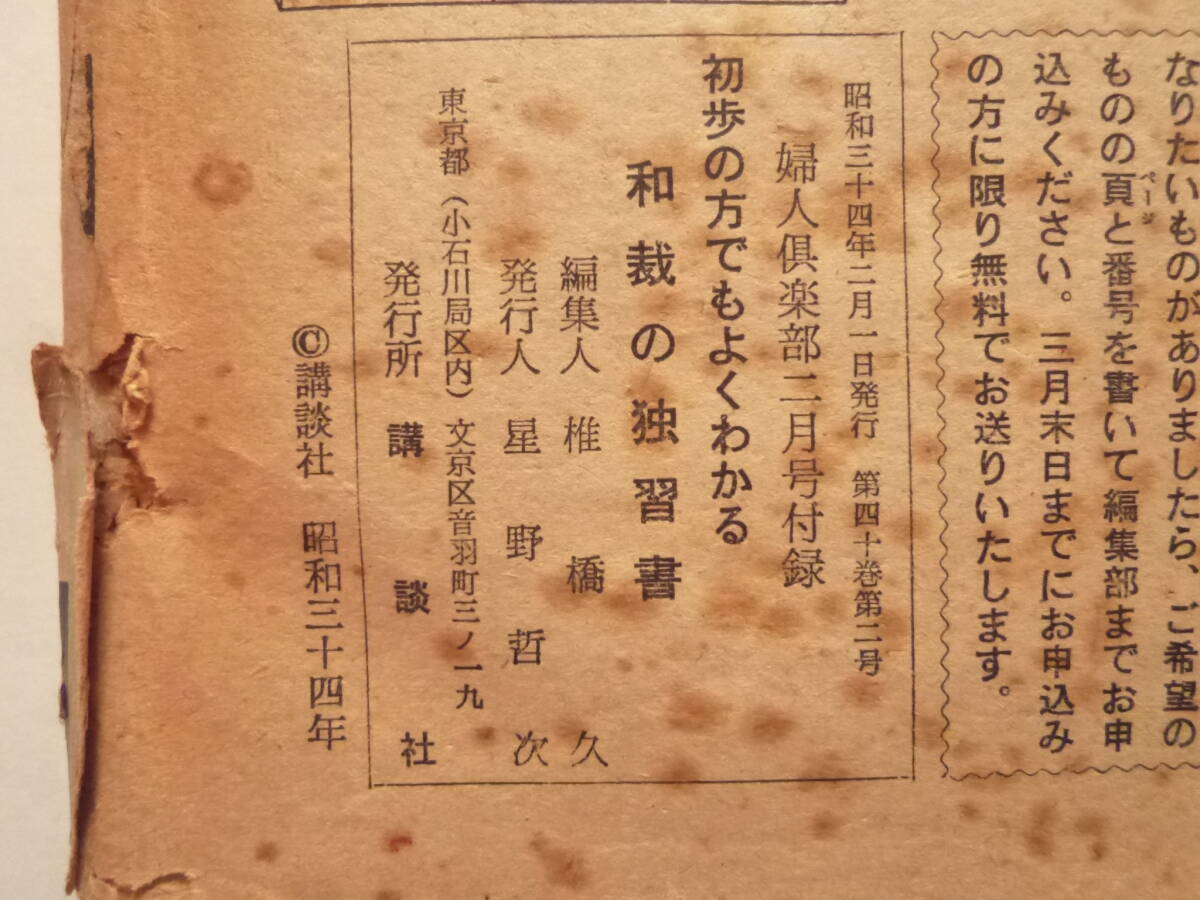 なりたいものがありましたら、ご希望の
ものの頁と番号を書いて編集部までお申
ページ
込みください。三月末日までにお申込み
の方に限り無料でお送りいたします。
昭和三十四年二月一日発行 第四十巻第二号
婦人倶楽部二月号付録
初歩の方でもよくわかる
和裁の独習書
編集人 椎橋久
発行人 星野哲次
東京都(小石川局区内)文京区音羽町三ノ一九
発行所 講談社
©講談社 昭和三十四年